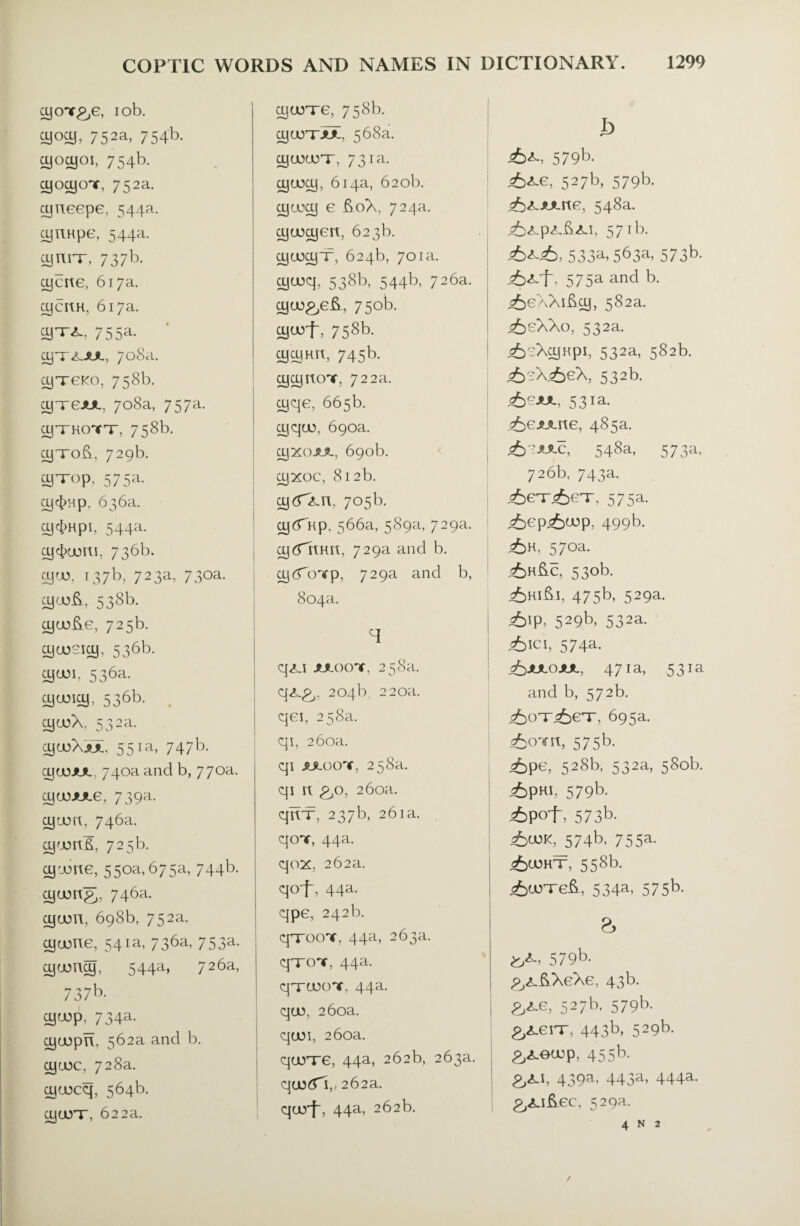 COPTIC WORDS AND NAMES IN DICTIONARY. 1299
ϣⲟⲩϩⲉ, 10b.
ϣⲟϣ, 752a, 754b.
ϣⲟϣⲟⲓ, 754b.
ϣⲟϣⲟⲩ, 752a.
ϣⲡⲉⲉⲣⲉ, 544a.
ϣⲡⲏⲣⲉ, 544a.
ϣⲡⲓⲧ, 737b.
ϣⲥⲛⲉ, 617a.
ϣⲥⲛⲏ, 617a.
ϣⲧⲁ, 755a.
ϣⲧⲁⲙ, 708a.
ϣⲧⲉⲕⲟ, 758b.
ϣⲧⲉⲙ, 708a, 757a.
ϣⲧⲏⲟⲩⲧ, 758b.
ϣⲧⲟⲃ, 729b.
ϣⲧⲟⲣ, 575a.
ϣⲫⲏⲣ, 636a.
ϣⲫⲏⲣⲓ, 544a.
ϣⲫⲱⲛⲓ, 736b.
ϣⲱ, 137b, 723a, 730a.
ϣⲱⲃ, 538b.
ϣⲱⲃⲉ, 725b.
ϣⲱⲉⲓϣ, 536b.
ϣⲱⲓ, 536a.
ϣⲱⲓϣ, 536b.
ϣⲱⲗ, 532a.
ϣⲱⲗⲙ̅, 551a, 747b.
ϣⲱⲙ, 740a and b, 770a.
ϣⲱⲙⲉ, 739a.
ϣⲱⲛ, 746a.
ϣⲱⲛⲃ̅, 725b.
ϣⲱⲛⲉ, 550a, 675a, 744b.
ϣⲱⲛϩ̅, 746a.
ϣⲱⲡ, 698b, 752a.
ϣⲱⲡⲉ, 541a, 736a, 753a.
ϣⲱⲡϣ̅, 544a, 726a,
737b.
ϣⲱⲣ, 734a.
ϣⲱⲣⲡ̅, 562a and b.
ϣⲱⲥ, 728a.
ϣⲱⲥϥ̅, 564b.
ϣⲱⲧ, 622a.
ϣⲱⲧⲉ, 758b.
ϣⲱⲧⲙ̅, 568a.
ϣⲱⲱⲧ, 731a.
ϣⲱϣ, 614a, 620b.
ϣⲱϣ ⲉ ⲃⲟⲗ, 724a.
ϣⲱϣⲉⲛ, 623b.
ϣⲱϣⲧ̅, 624b, 701a.
ϣⲱϥ, 538b, 544b, 726a.
ϣⲱϩⲉⲃ, 750b.
ϣⲱϯ, 758b.
ϣϣⲏⲛ, 745b.
ϣϣⲛⲟⲩ, 722a.
ϣϥⲉ, 665b.
ϣϥⲱ, 690a.
ϣϫⲟⲙ, 690b.
ϣϫⲟⲥ, 812b.
ϣϭⲁⲡ, 705b.
ϣϭⲏⲣ, 566a, 589a, 729a.
ϣϭⲛⲏⲛ, 729a and b.
ϣϭⲟⲩⲣ, 729a and b,
804a.
ϥ
ϥⲁⲓ ⲙⲟⲟⲩ, 258a.
ϥⲁϩ, 204b, 220a.
ϥⲉⲓ, 258a.
ϥⲓ, 260a.
ϥⲓ ⲙⲟⲟⲩ, 258a.
ϥⲓ ⲛ ϩⲟ, 260a.
ϥⲛⲧ̅, 237b, 261a.
ϥⲟⲩ, 44a.
ϥⲟϫ, 262a.
ϥⲟϯ, 44a.
ϥⲣⲉ, 242b.
ϥⲧⲟⲟⲩ, 44a, 263a.
ϥⲧⲟⲩ, 44a.
ϥⲧⲱⲟⲩ, 44a.
ϥⲱ, 260a.
ϥⲱⲓ, 260a.
ϥⲱⲧⲉ, 44a, 262b, 263a.
ϥⲱϭⲓ, 262a.
ϥⲱϯ, 44a, 262b.
ϧ
ϧⲁ, 579b.
ϧⲁⲉ, 527b, 579b.
ϧⲁⲙⲛⲉ, 548a.
ϧⲁⲣⲁⲃⲁⲓ, 571b.
ϧⲁϧ, 533a, 563a, 573b.
ϧⲁϯ, 575a and b.
ϧⲉⲗⲗⲓⲃϣ, 582a.
ϧⲉⲗⲗⲟ, 532a.
ϧⲉⲗϣⲏⲣⲓ, 532a, 582b.
ϧⲉⲗϧⲉⲗ, 532b.
ϧⲉⲙ, 531a.
ϧⲉⲙⲛⲉ, 485a.
ϧⲉⲙⲥ, 548a, 573a,
726b, 743a.
ϧⲉⲧϧⲉⲧ, 575a.
ϧⲉⲣϧⲱⲣ, 499b.
ϧⲏ, 570a.
ϧⲏⲃⲥ, 530b.
ϧⲏⲓⲃⲓ, 475b, 529a.
ϧⲓⲣ, 529b, 532a.
ϧⲓⲥⲓ, 574a.
ϧⲙⲟⲙ, 471a, 531a
and b, 572b.
ϧⲟⲧϧⲉⲧ, 695a.
ϧⲟⲩⲛ, 575b.
ϧⲣⲉ, 528b, 532a, 580b.
ϧⲣⲏⲓ, 579b.
ϧⲣⲟϯ, 573b.
ϧⲱⲕ, 574b, 755a.
ϧⲱⲛⲧ̅, 558b.
ϧⲱⲧⲉⲃ, 534a, 575b.
ϩ
ϩⲁ, 579b.
ϩⲁⲃⲗⲉⲗⲉ, 43b.
ϩⲁⲉ, 527b, 579b.
ϩⲁⲉⲓⲧ, 443b, 529b.
ϩⲁⲑⲱⲣ, 455b.
ϩⲁⲓ, 439a, 443a, 444a.
ϩⲁⲓⲃⲉⲥ, 529a.
4 N 2